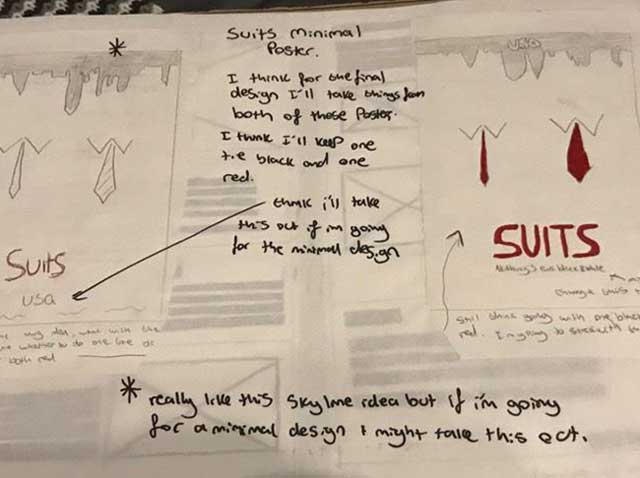 Suits Minimal
Poster.
I think for the final
design I'll take things from
both of these Poster.
I think I'll keep one
tie black and one
red.
think i'll take
this out if i'm going
for the minimal design
Suits
usa
both red
USA
SUITS
Nothing's ever black & white
Change this
Still think going with one black
red. I'm going to stick with
* really like this skyline idea but if i'm going
for a minimal design I might take this oct.